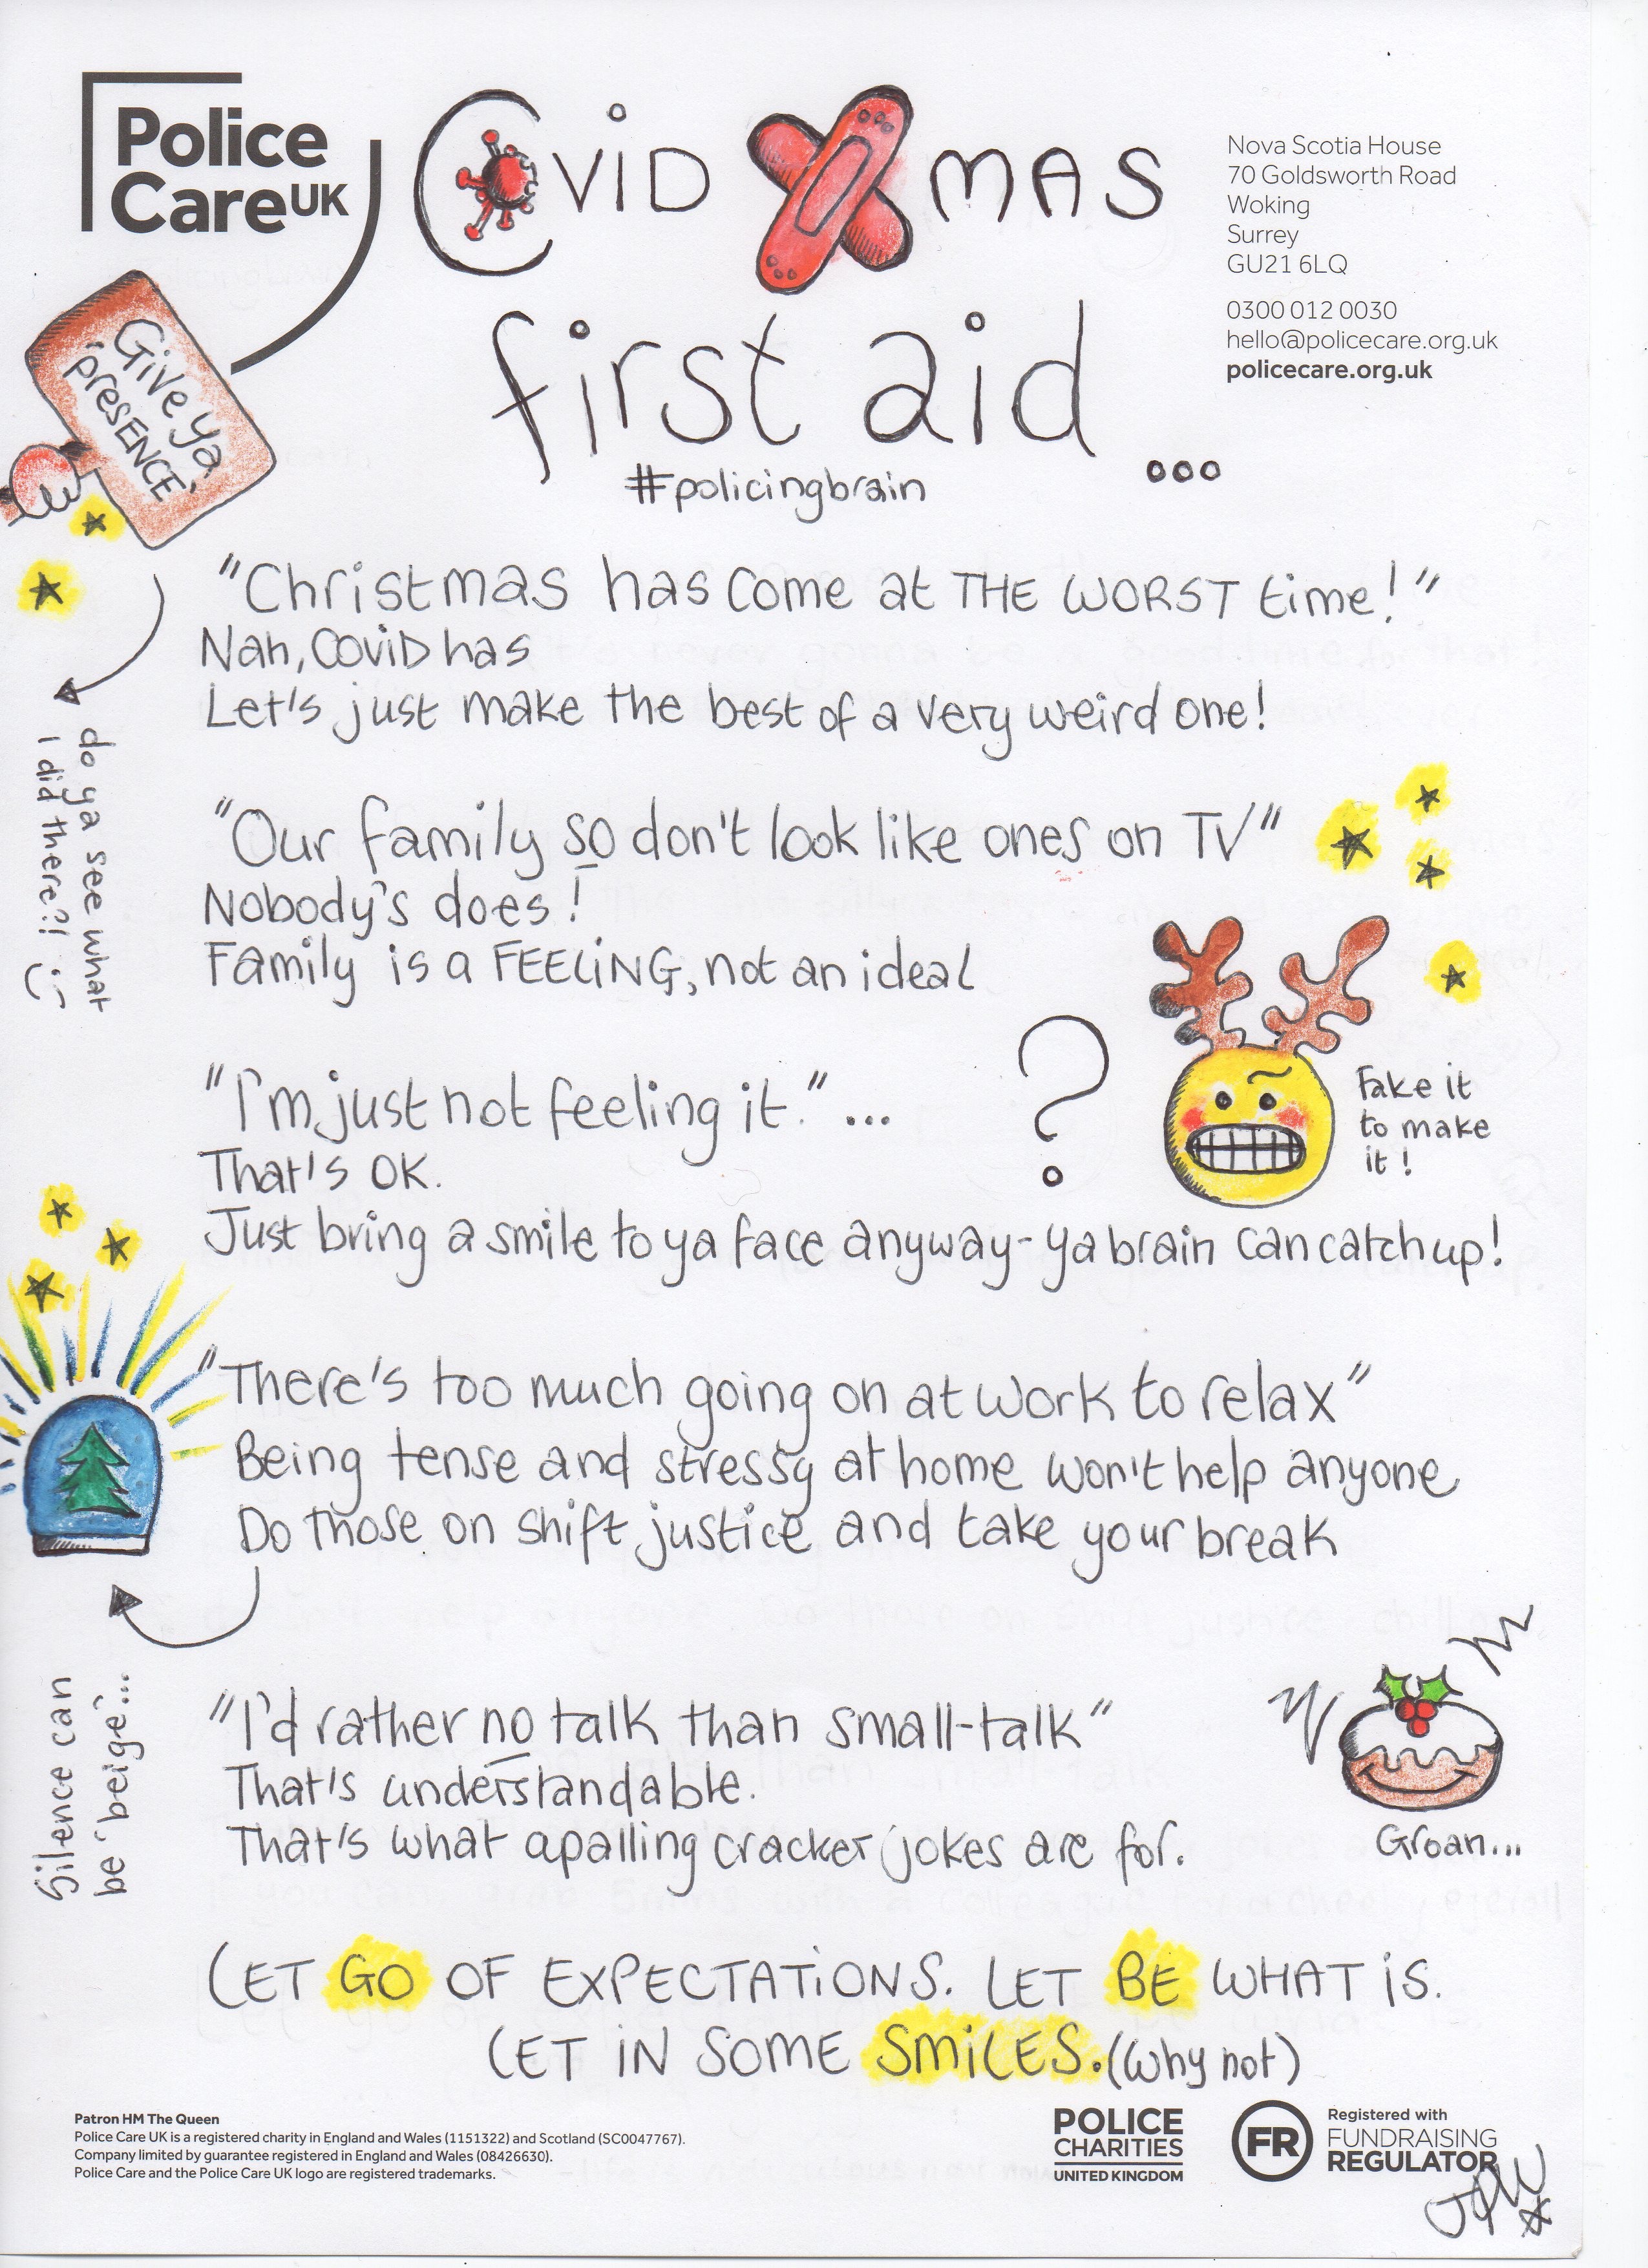 Police
Care UK
CoviD XMAS
first aid...
#policingbrain
Nova Scotia House
70 Goldsworth Road
Woking
Surrey
GU21 6LQ
0300 012 0030
hello@policecare.org.uk
policecare.org.uk
Give ya
'presENCE'
do ya see what
I did there?! :)
"Christmas has come at THE WORST time!"
Nah, CoviD has
Let's just make the best of a very weird one!
"Our family so don't look like ones on TV"
Nobody's does!
Family is a FEELiNG, not an ideal
"I'm just not feeling it."...
?
That's OK.
Just bring a smile to ya face anyway - ya brain can catch up!
Fake it
to make
it!
"There's too much going on at work to relax"
Being tense and stressy at home won't help anyone
Do those on shift justice and take your break
Silence can
be 'beige'...
"I'd rather no talk than small-talk"
That's understandable.
That's what apalling cracker jokes are for.
Groan...
LET GO OF EXPECTATiONS. LET BE WHAT iS.
LET iN SOME SMiLES. (why not)
Patron HM The Queen
Police Care UK is a registered charity in England and Wales (1151322) and Scotland (SC0047767).
Company limited by guarantee registered in England and Wales (08426630).
Police Care and the Police Care UK logo are registered trademarks.
POLICE
CHARITIES
UNITED KINGDOM
FR
Registered with
FUNDRAISING
REGULATOR